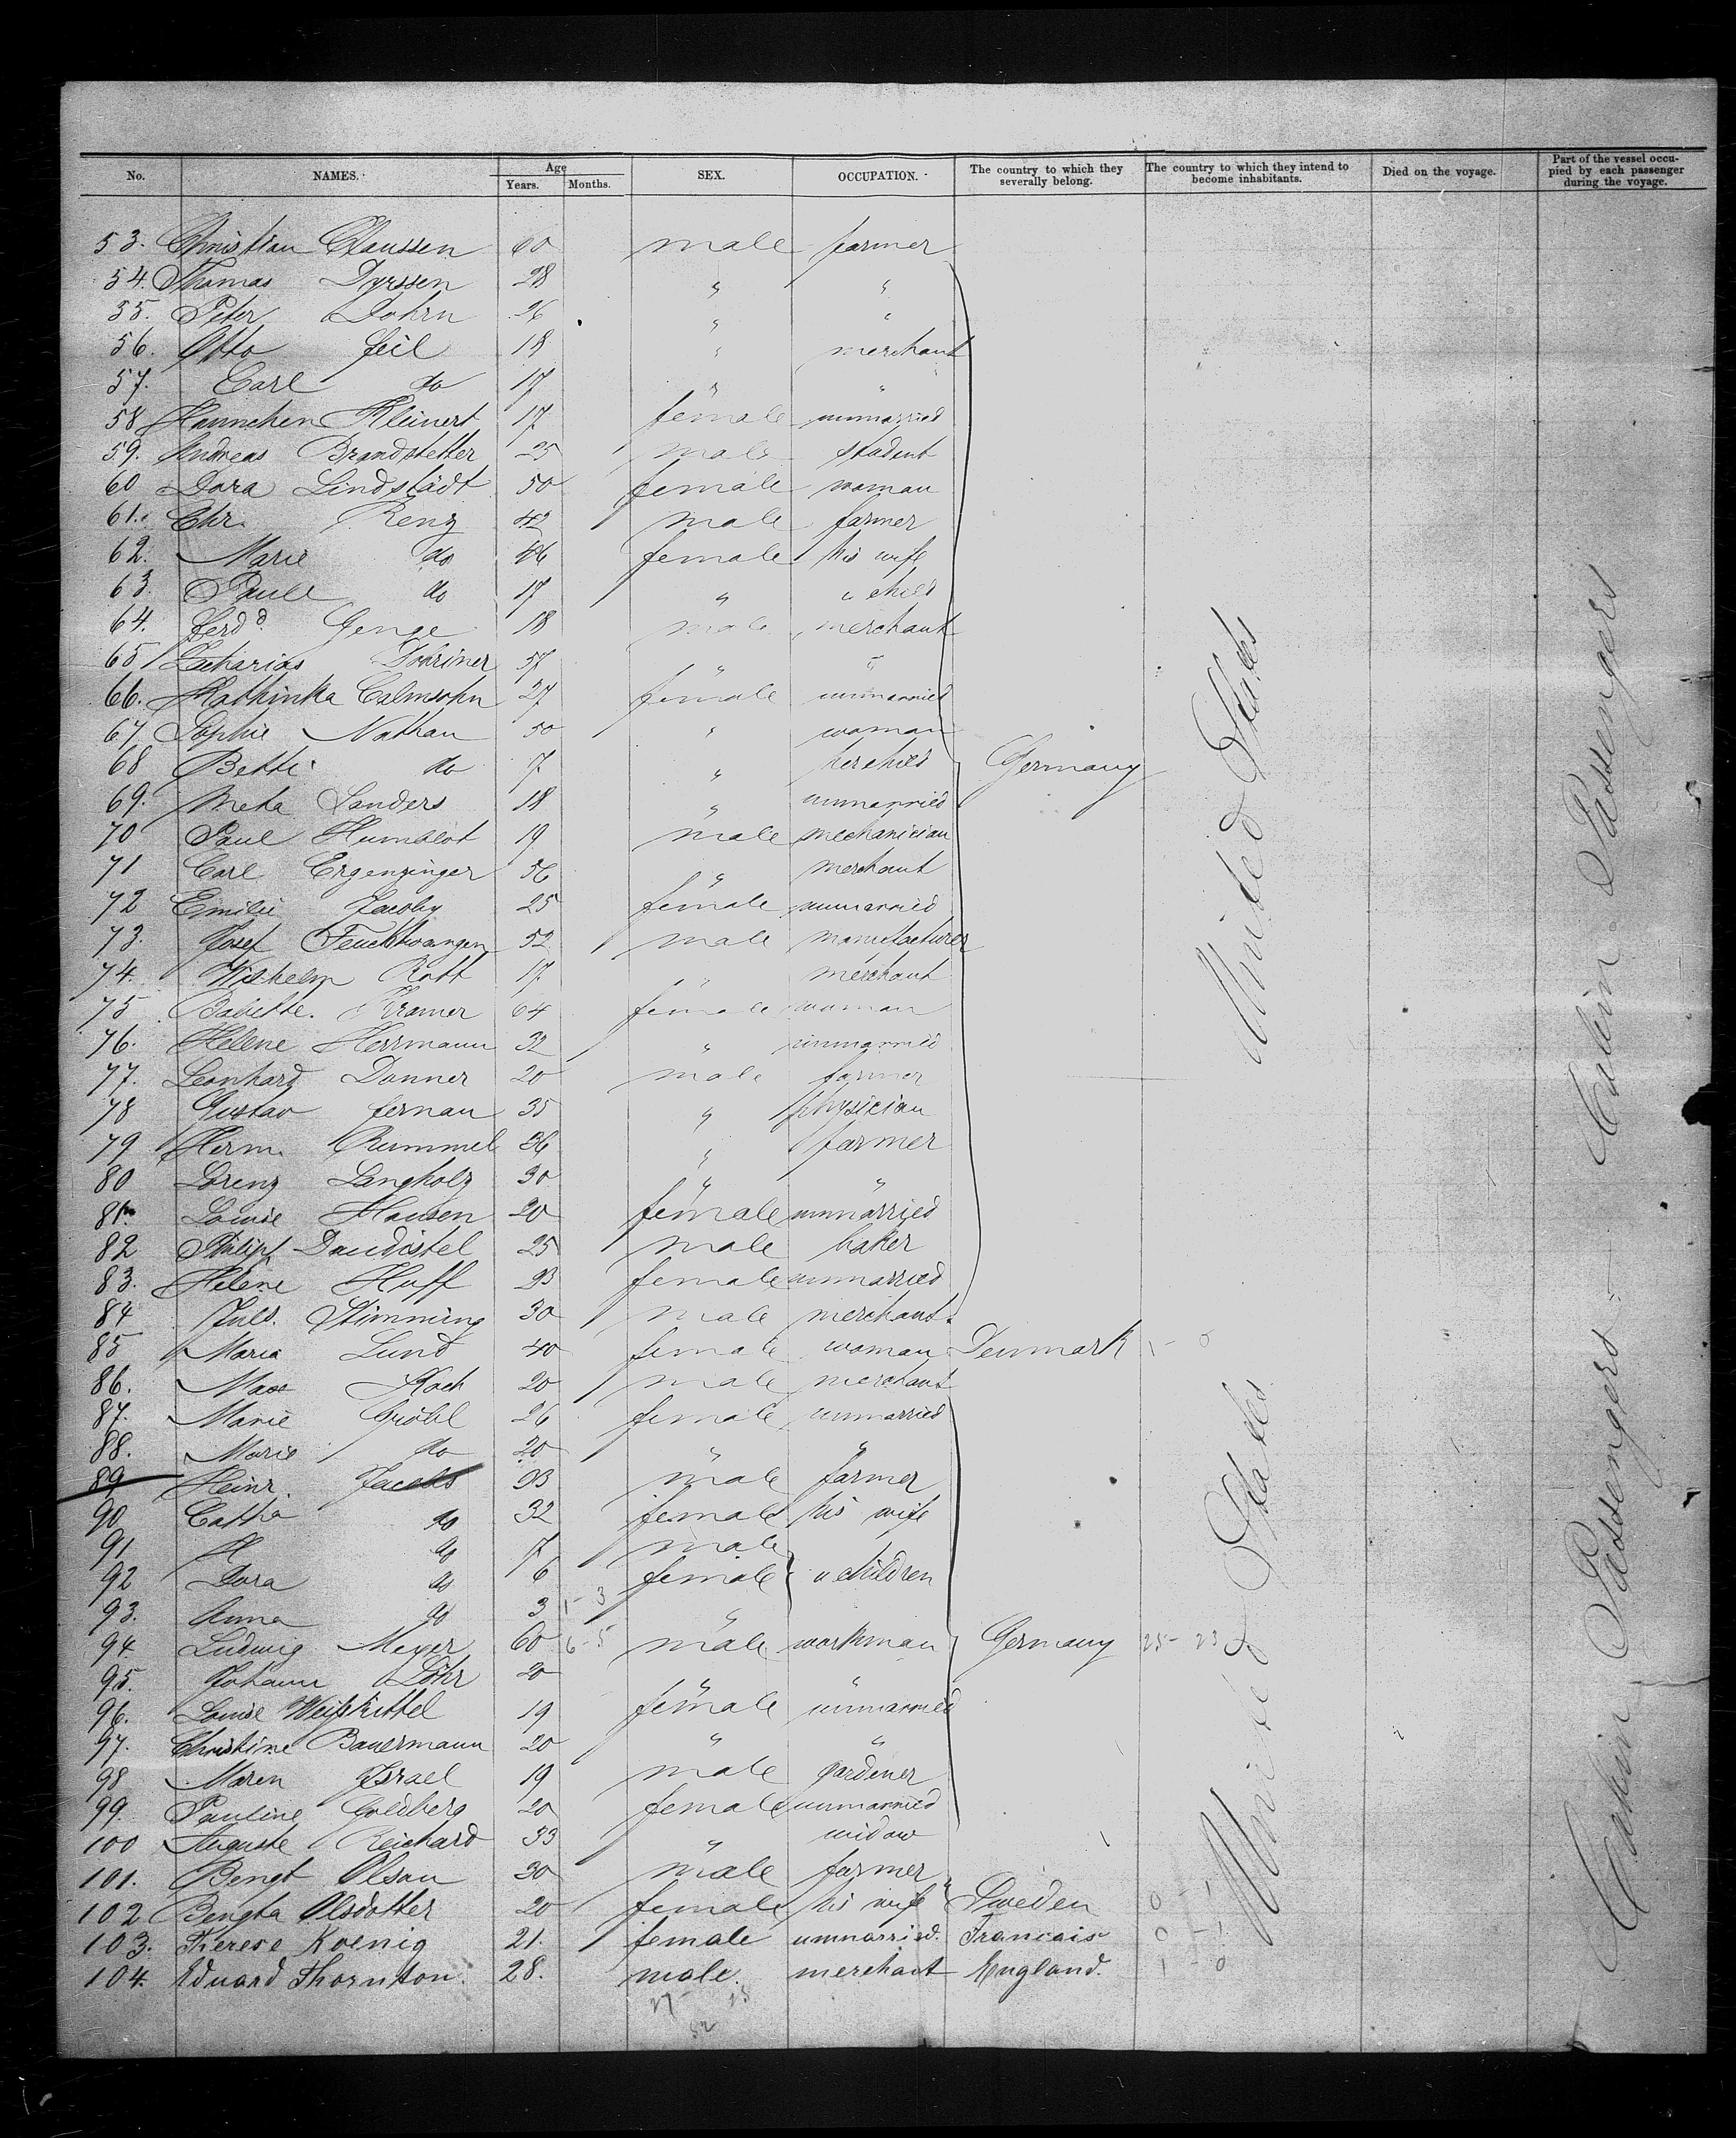 No. NAMES. Age Years. Months. SEX. OCCUPATION. The country to which they severally belong. The country to which they intend to become inhabitants. Died on the voyage. Part of the vessel occupied by each passenger during the voyage.
53. Christian Claussen 60 male farmer
54. Thomas Dyrssen 28 " "
55. Peter Dohrn 26 " "
56. Otto Feil 18 " merchant
57. Carl do 17 " "
58 Hannchen Kleinert 17 female unmarried
59. Andreas Brandstetter 25 male student
60 Dora Lindstädt 50 female woman
61. Chr. Renz 42 male farmer
62. Marie do 46 female his wife
63. Paule do 17 " " child
64. Ferdd. Genge 18 male merchant
65 Zacharias Dohriner 57 " "
66. Kathinka Calmsohn 27 female unmarried
67 Sophie Nathan 50 " woman
68 Betti do 7 " her child Germany
69. Meta Sanders 18 " unmarried
70 Paul Humblot 19 male mechanician
71 Carl Ergenzinger 56 " merchant
72 Emilie Jacoby 25 female unmarried
73. Josef Feuchtwangen 52 male manufacturer
74. Wilhelm Rott 17 " merchant
75 Babette. Kramer 64 female woman
76. Helene Herrmann 32 " unmarried
77. Leonhard Danner 20 male farmer
78 Gustav Fernau 35 " physician
79 Herm. Rummel 36 " farmer
80 Lorenz Langholz 30 " "
81. Louise Hansen 20 female unmarried
82 Philipp Daudistel 25 male baker
83. Helene Hoff 23 female unmarried
84 Juls. Stimming 30 male merchant
85 Maria Lund 40 female woman Denmark 1 - 0
86. Max Koch 20 male merchant
87. Marie Gröhl 26 female unmarried
88. Marie do 20 " "
89 Heinr. Jacobs 33 male farmer
90 Catha do 32 female his wife
91 H do 7 male
92 Dora do 6 female " children
93. Anna do 3 1 - 3 "
94. Ludwig Meyer 60 6 - 5 male workman Germany 25 - 23
95. Johann Löhr 20 " "
96. Louise Weißkittel 19 female unmarried
97. Christine Bauermann 20 " "
98 Maren Israel 19 male gardener
99. Pauline Goldberg 20 female unmarried
100 Auguste Reichard 33 " widow
101. Bengt Olsan 30 male farmer
102 Bengta Olsdotter 20 female his wife Sweden
103. Therese Koenig 21. female unmarried. Francais 0 - 1
104. Eduard Thornton. 28. male. merchant England. 1 - 0
52
United States
United States
Cabin Passengers
Cabin Passengers